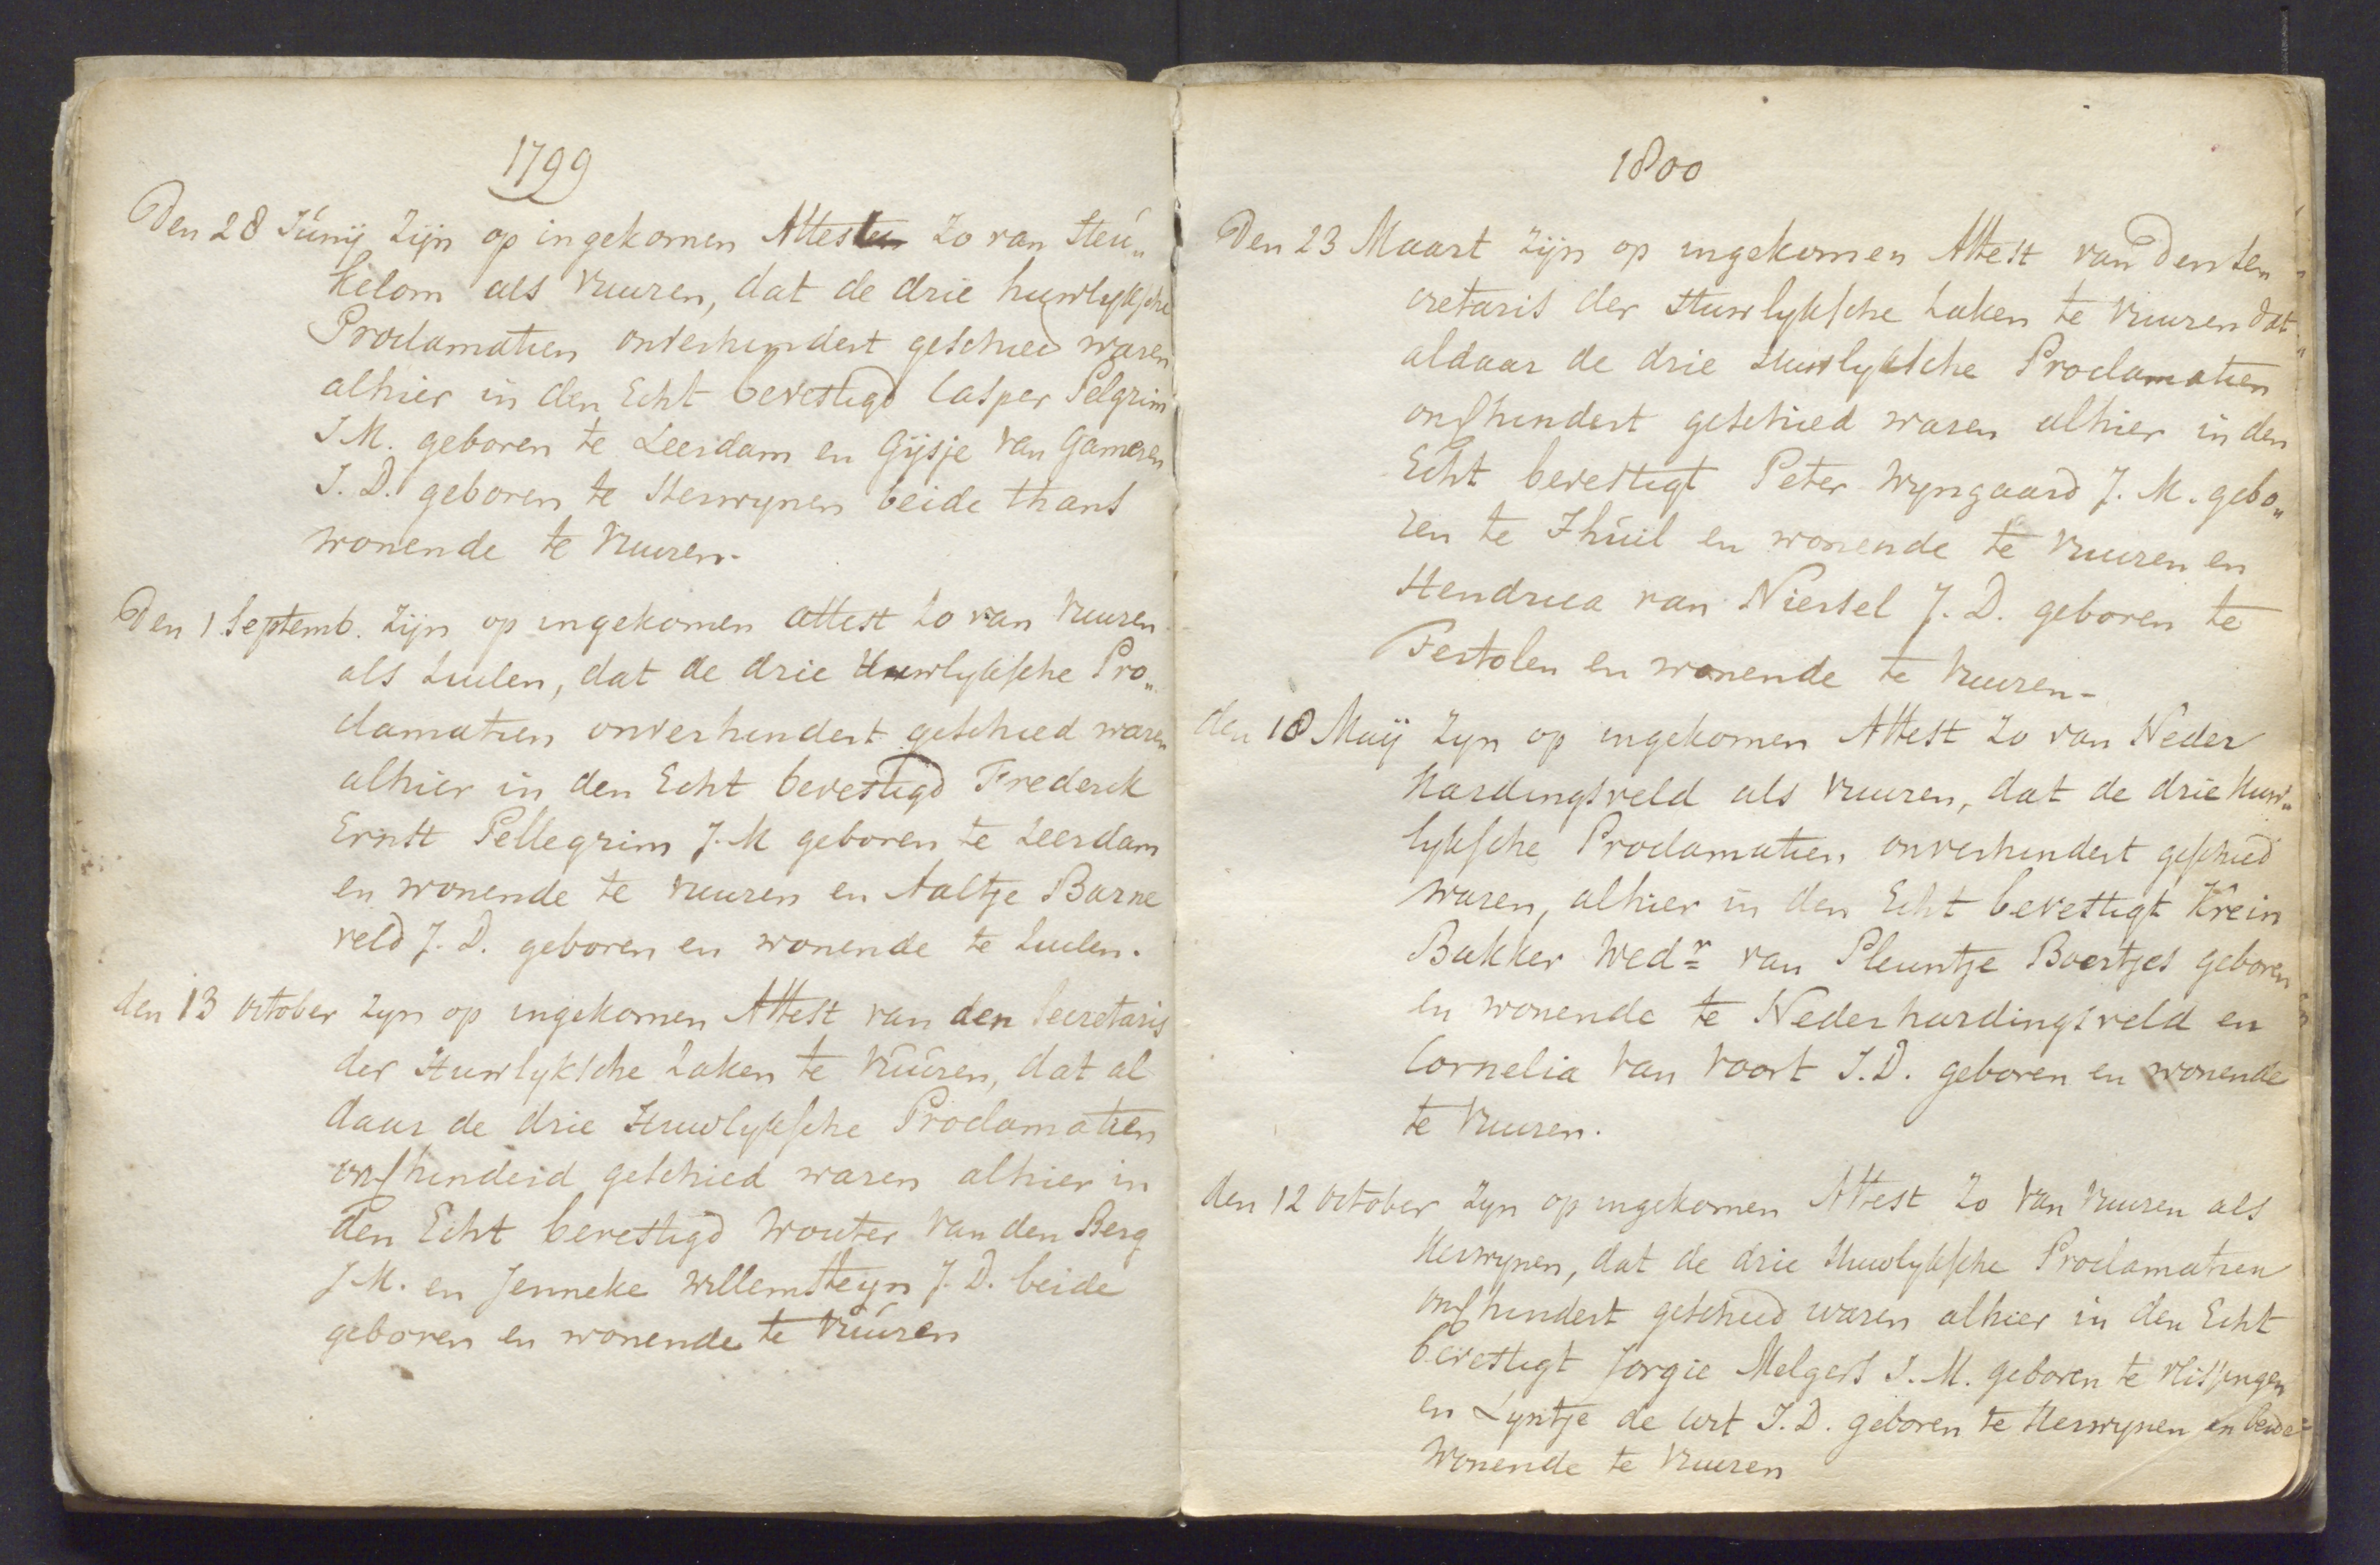 1799
Den 28 Júnij zijn op ingekomen Attesten zo van Heú„
kelom als Vuuren, dat de drie huwlyksche
Proclamatien onverhindert geschied waren
alhier in den Echt bevestigd Casper Pelgrim
J.M. geboren te Leerdam en Gijsje van Gameren
J.D. geboren te Herwynen beide thans
wonende te Vuuren.
Den 1 Septemb. zijn op ingekomen attest zo van Vuuren
als Luilen, dat de drie Huwlyksche Pro„
clamatien onverhindert geschied waren
alhier in den Echt bevestigd Frederik
Ernst Pellegrim J.M geboren te Leerdam
en wonende te Vuuren en Aaltje Barne
veld J.D. geboren en wonende te Luilen.
den 13 october zyn op ingekomen Attest van den Secretaris
der Huwlyksche Zaken te Vúúren, dat al
daar de drie Huwlyksche Proclamatien
onverhinderd geschied waren alhier in
den Echt bevestigd Wouter van den Berg
J.M. en Jenneke Willemsteyn J.D. beide
geboren en wonende te Vúúren
1800
Den 23 Maart zijn op ingekomen Attest van den Se„
cretaris der Huwlyksche Zaken te Vuuren dat
aldaar de drie Huwlyksche Proclamatien
onverhindert geschied waren alhier in den
Echt bevestigt Peter Wyngaard J.M. gebo„
ren te Thúil en wonende te Vuuren en
Hendrica van Niersel J.D. geboren te
en wonende te Vuuren.
den 18 Maij zyn op ingekomen Attest zo van Neder
Hardingsveld als Vuuren, dat de drie Huw„
lyksche Proclamatien onverhindert geschied
waren, alhier in den Echt bevestigt Krein
Bakker Wedr van Pleuntje Boertjes geboren
en wonende te Nederhardingsveld en
Cornelia van Voort J.D. geboren en wonende
te Vuuren.
den 12 october zyn op ingekomen Attest zo van Vuuren als
Herwynen, dat de drie Huwlyksche Proclamatien
onverhindert geschied waren alhier in den Echt
bevestigt Jorgie Melgers J.M. geboren te Vlissingen
en Lyntje de Wit J.D. geboren te Herwynen en beide
wonende te Vuuren